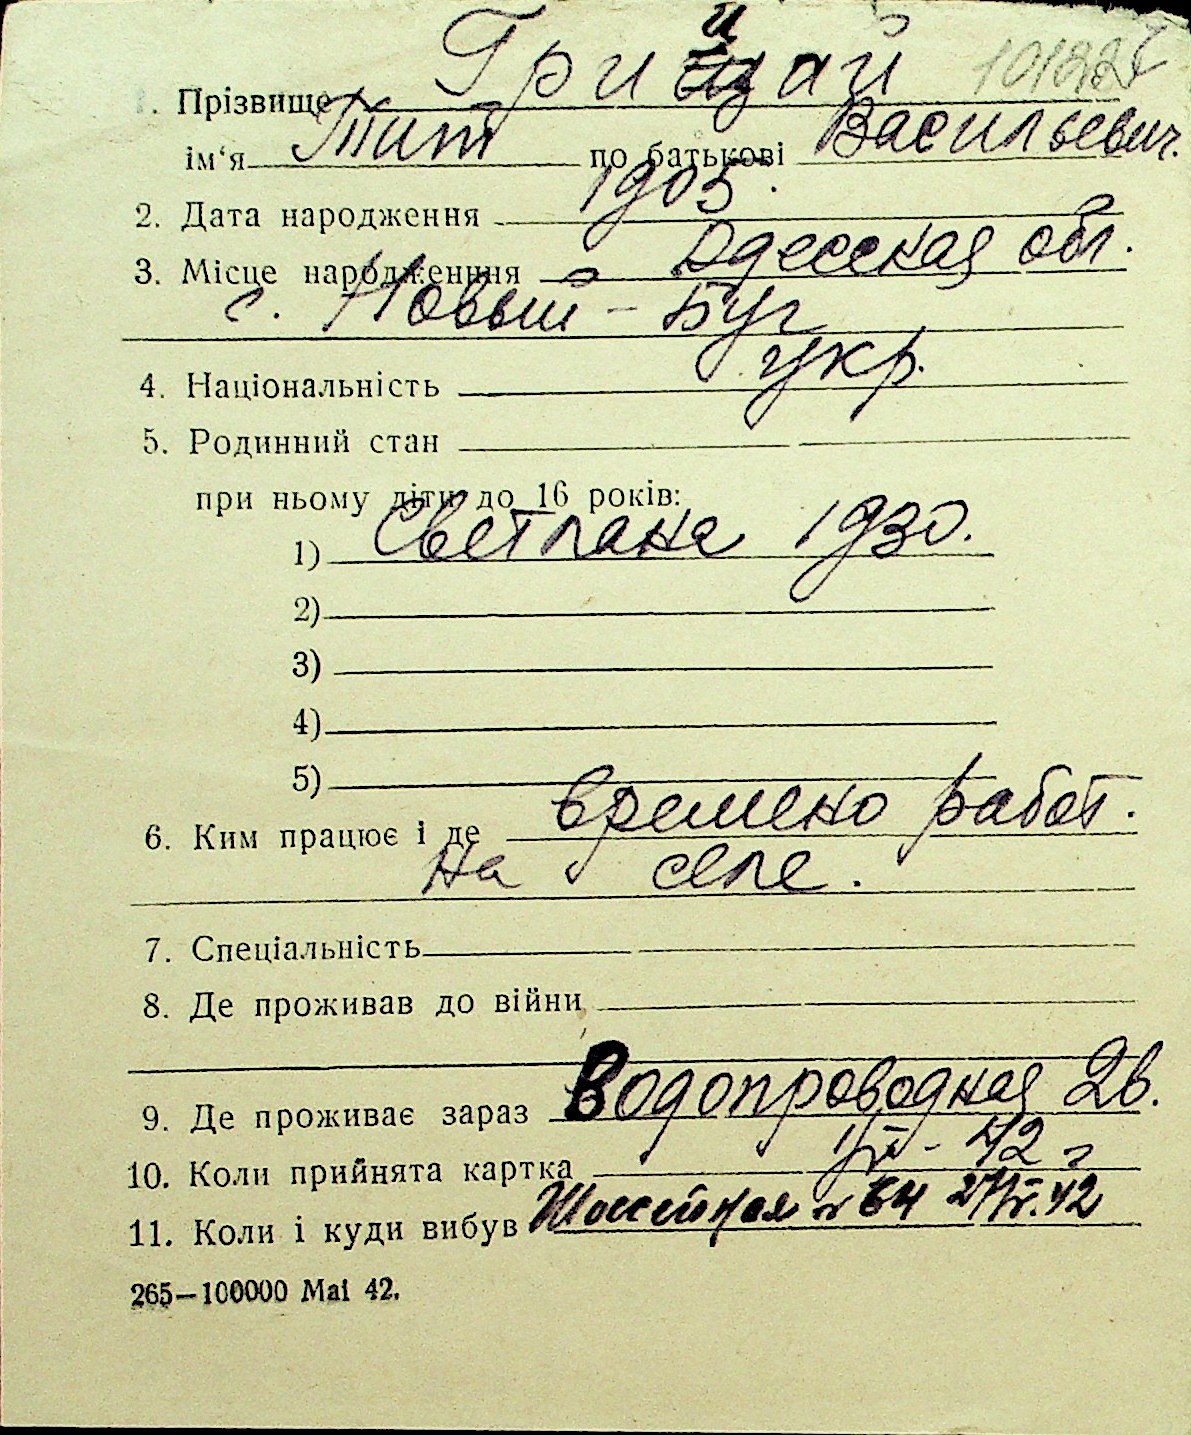 1. Прізвище Грицай 101227
ім'я Тит по батькові Васильевич.
2. Дата народження 1905.
3. Місце народженння Одесская обл.
г. Новый-Буг
4. Національність укр.
5. Родинний стан
при ньому діти до 16 років:
1) Светлана 1930.
2)
3)
4)
5)
6. Ким працює і де времено работ.
на селе.
7. Спеціальність
8. Де проживав до війни
9. Де проживає зараз Водопроводная 2в.
10. Коли прийнята картка 42 г
11. Коли і куди вибув Шоссейная № 64 42
265—100000 Mai 42.